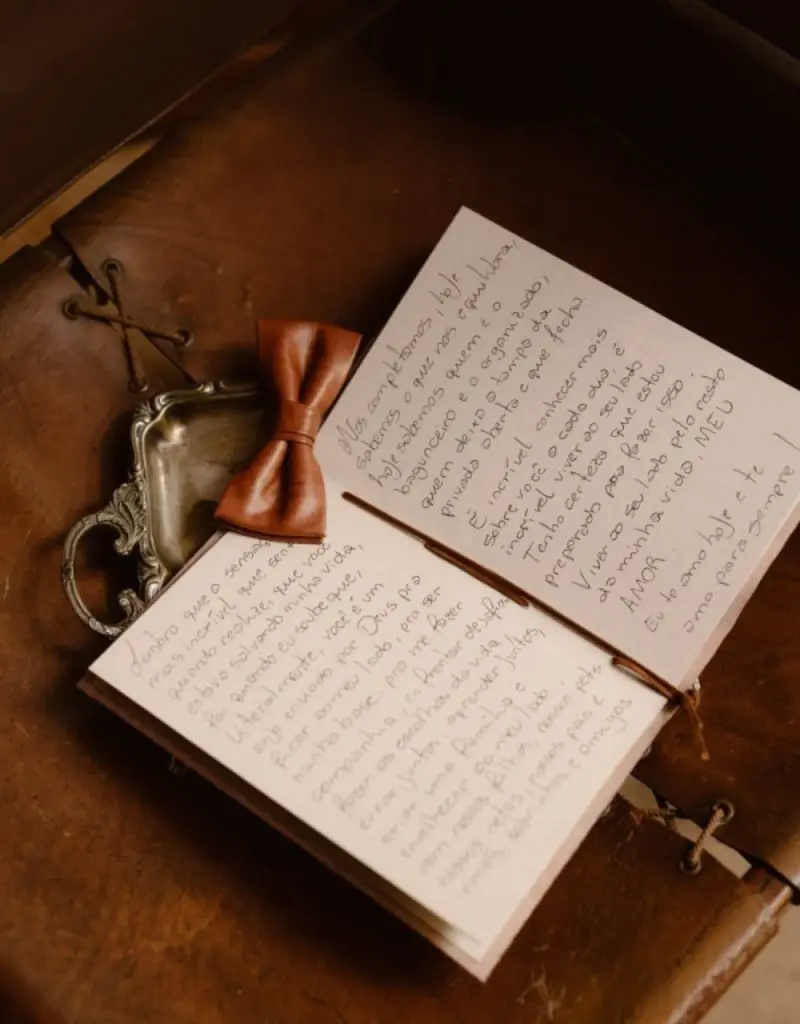 Lembro que o sensação
mais incrível que sent
quando realizei que você
estava salvando minha vida,
foi quando eu soube que,
literalmente, você é um
anjo enviado por Deus pra
ficar ao meu lado, pra ser
minha base, pra me fazer
companhia, enfrentar desafios
fazer as escolhas da vida
errar juntos, aprender juntos,
criar uma família e
envelhecer ao meu lado
com nossos filhos, nossos pets
nossos netos, nossos pais e
amigos
Nos completamos, hoje
sabemos o que nos equilibra,
hoje sabemos quem é o
bagunceiro e o organizado,
quem deixa a tampa da
privada aberta e que fecha
É incrível conhecer mais
sobre você a cada dia, é
incrível viver ao seu lado
Tenho certeza que estou
preparado para fazer isso
Viver ao seu lado pelo resto
da minha vida, MEU
AMOR.
Eu te amo hoje e te
amo para sempre!